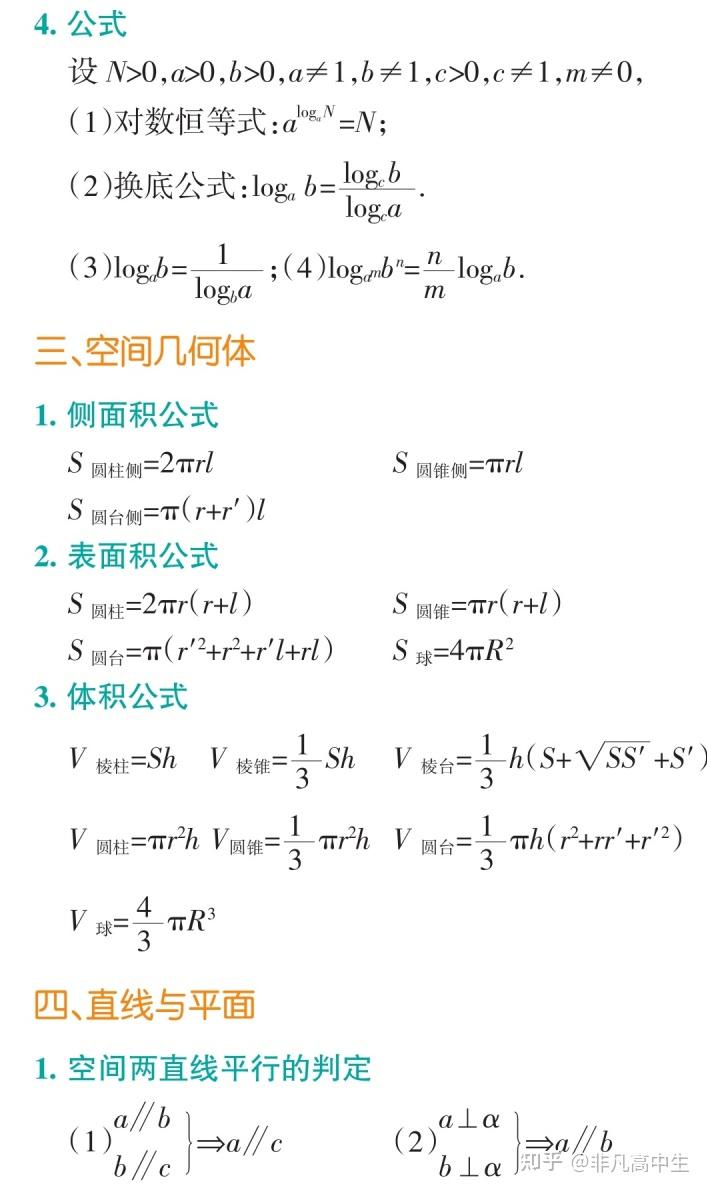 4. 公式
设 N>0,a>0,b>0,a≠1,b≠1,c>0,c≠1,m≠0,
(1)对数恒等式:a^{log_a N}=N;
(2)换底公式:log_a b=\frac{log_c b}{log_c a}.
(3)log_a b=\frac{1}{log_b a};(4)log_{a^m}b^n=\frac{n}{m}log_a b.
三、空间几何体
1. 侧面积公式
S圆柱侧=2πrl S圆锥侧=πrl
S圆台侧=π(r+r′)l
2. 表面积公式
S圆柱=2πr(r+l) S圆锥=πr(r+l)
S圆台=π(r′²+r²+r′l+rl) S球=4πR²
3. 体积公式
V棱柱=Sh V棱锥=\frac{1}{3}Sh V棱台=\frac{1}{3}h(S+√SS′+S′)
V圆柱=πr²h V圆锥=\frac{1}{3}πr²h V圆台=\frac{1}{3}πh(r²+rr′+r′²)
V球=\frac{4}{3}πR³
四、直线与平面
1. 空间两直线平行的判定
(1) a∥b b∥c }⇒a∥c (2) a⊥α b⊥α }⇒a∥b
知乎 @非凡高中生